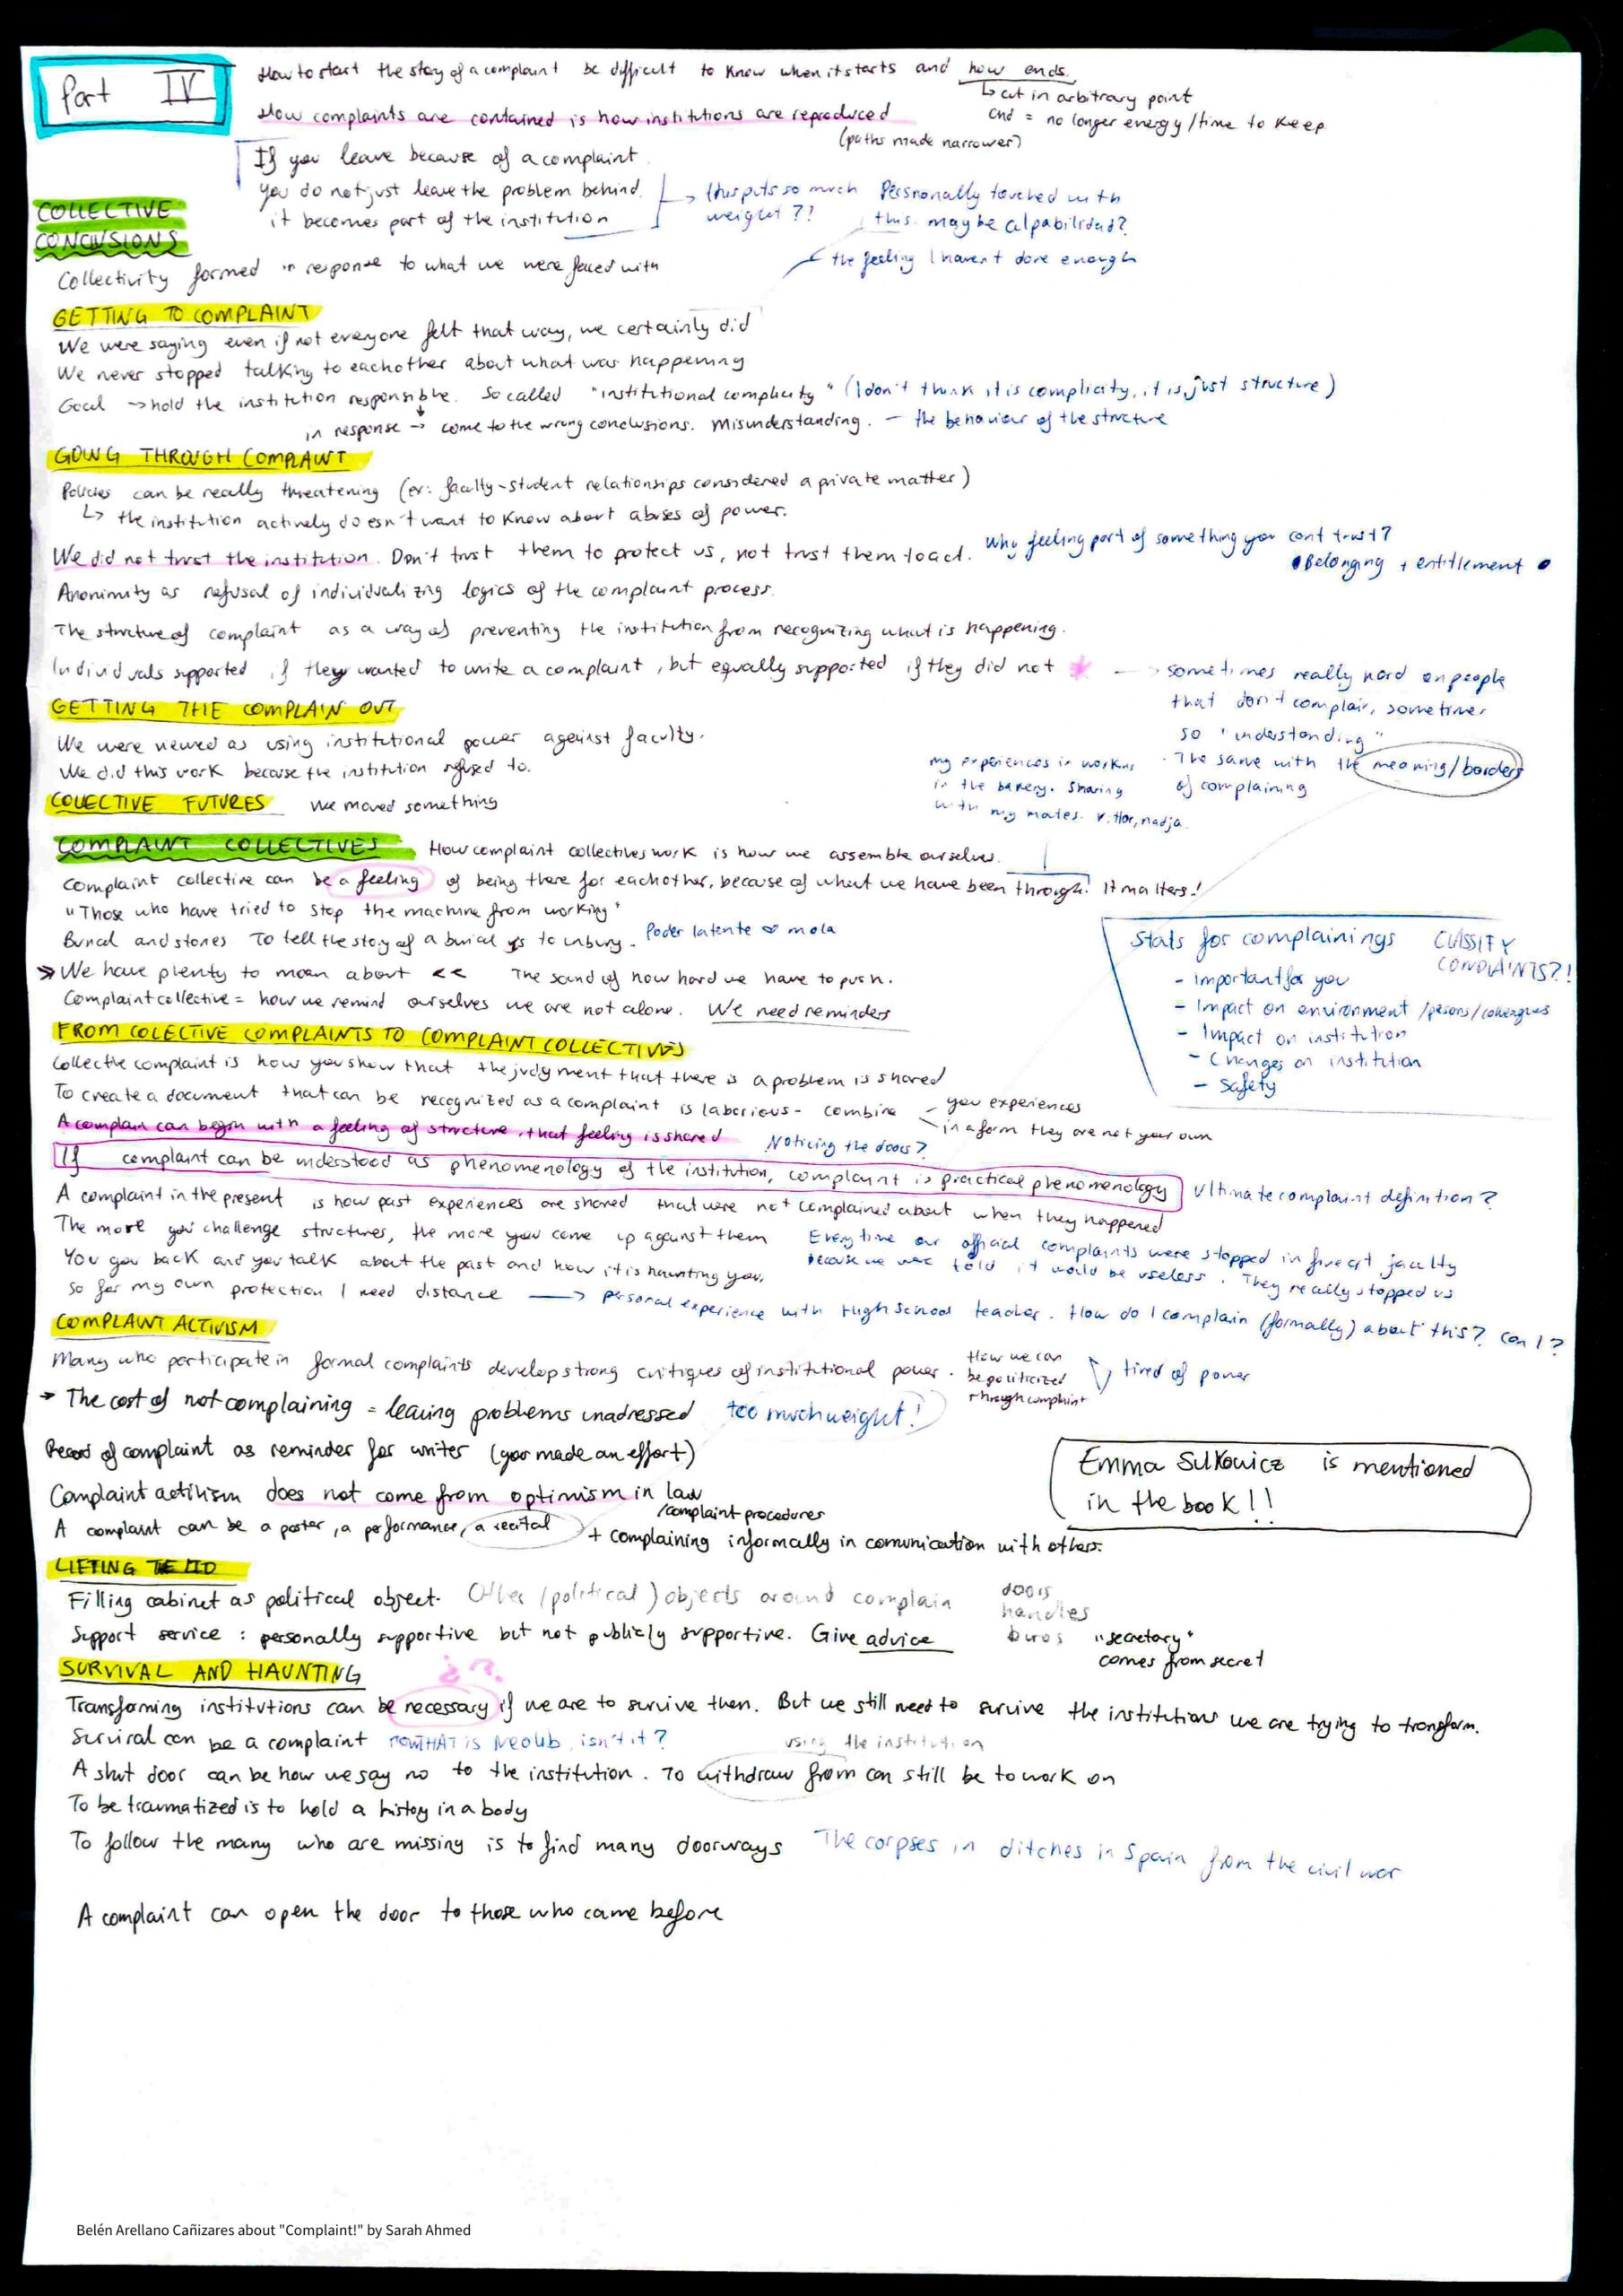 Part IV
How to start the story of a complaint be difficult to know when it starts and how ends.
↳ cut in arbitrary point
end = no longer energy/time to keep
How complaints are contained is how institutions are reproduced
(paths made narrower)
If you leave because of a complaint
you do not just leave the problem behind.
it becomes part of the institution
→ this puts so much weight?!
Personally touched with
this. maybe culpabilidad?
the feeling I haven't done enough
COLLECTIVE
CONCLUSIONS
Collectivity formed in response to what we were faced with
GETTING TO COMPLAINT
We were saying even if not everyone felt that way, we certainly did
We never stopped talking to eachother about what was happening
Goal → hold the institution responsible. So called "institutional complicity" (I don't think it is complicity, it is just structure)
in response → come to the wrong conclusions. Misunderstanding. – the behaviour of the structure
GOING THROUGH COMPLAINT
Policies can be really threatening (ex: faculty-student relationsips considered a private matter)
↳ the institution actively doesn't want to know about abuses of power.
We did not trust the institution. Don't trust them to protect us, not trust them to act.
Why feeling part of something you cant trust?
• Belonging + entitlement •
Anonimity as refusal of individualizing logics of the complaint process.
The structure of complaint as a way of preventing the institution from recognizing what is happening.
Individuals supported if they wanted to write a complaint, but equally supported if they did not * → sometimes really hard on people
that don't complain, sometimes
so "understanding"
. The same with the meaning/borders
of complaining
GETTING THE COMPLAIN OUT
We were viewed as using institutional power against faculty.
We did this work because the institution refused to.
my experiences in working
in the bakery. Sharing
with my mates. Vitlor, nadja.
COLLECTIVE FUTURES We moved something
COMPLAINT COLLECTIVES How complaint collectives work is how we assemble ourselves.
Complaint collective can be a feeling of being there for eachother, because of what we have been through. It matters!
"Those who have tried to stop the machine from working"
Burial and stories To tell the story of a burial is to unbury. Poder latente ♡ mola
» We have plenty to moan about « The sound of how hard we have to push.
Complaint collective = how we remind ourselves we are not alone. We need reminders
Stats for complainings CLASSIFY
COMPLAINTS?!
- Important for you
- Impact on environment /persons/colleagues
- Impact on institution
- Changes on institution
- Safety
FROM COLECTIVE COMPLAINTS TO COMPLAINT COLLECTIVES
Collective complaint is how you show that the judgment that there is a problem is shared
To create a document that can be recognized as a complaint is laborious - combine – you experiences
– in a form they are not your own
A complain can begin with a feeling of structure, that feeling is shared Noticing the doors?
If complaint can be understood as phenomenology of the institution, complaint is practical phenomenology Ultimate complaint definition?
A complaint in the present is how past experiences are shared that were not complained about when they happened
The more you challenge structures, the more you come up against them
Every time our official complaints were stopped in fine art faculty
because we were told it would be useless. They really stopped us
You go back and you talk about the past and how it is haunting you,
so for my own protection I need distance → personal experience with High School teacher. How do I complain (formally) about this? Can I?
COMPLAINT ACTIVISM
Many who participate in formal complaints develop strong critiques of institutional power.
How we can
be politicized
through complaint
tired of power
→ The cost of not complaining = leaving problems unadressed too much weight!
Record of complaint as reminder for writer (you made an effort)
Emma Sulkowicz is mentioned
in the book!!
Complaint activism does not come from optimism in law
/complaint procedures
A complaint can be a poster, a performance, a recital + complaining informally in comunication with others.
LIFTING THE LID
Filling cabinet as political object. Other (political) objects around complain
doors
handles
buros
Support service : personally supportive but not publicly supportive. Give advice
"secretary"
comes from secret
SURVIVAL AND HAUNTING
¿?
Transforming institutions can be necessary if we are to survive them. But we still need to survive the institutions we are trying to transform.
Survival can be a complaint THAT is Neolib, isn't it?
using the institution
A shut door can be how we say no to the institution. To withdraw from can still be to work on
To be traumatized is to hold a history in a body
To follow the many who are missing is to find many doorways The corpses in ditches in Spain from the civil war
A complaint can open the door to those who came before
Belén Arellano Cañizares about "Complaint!" by Sarah Ahmed